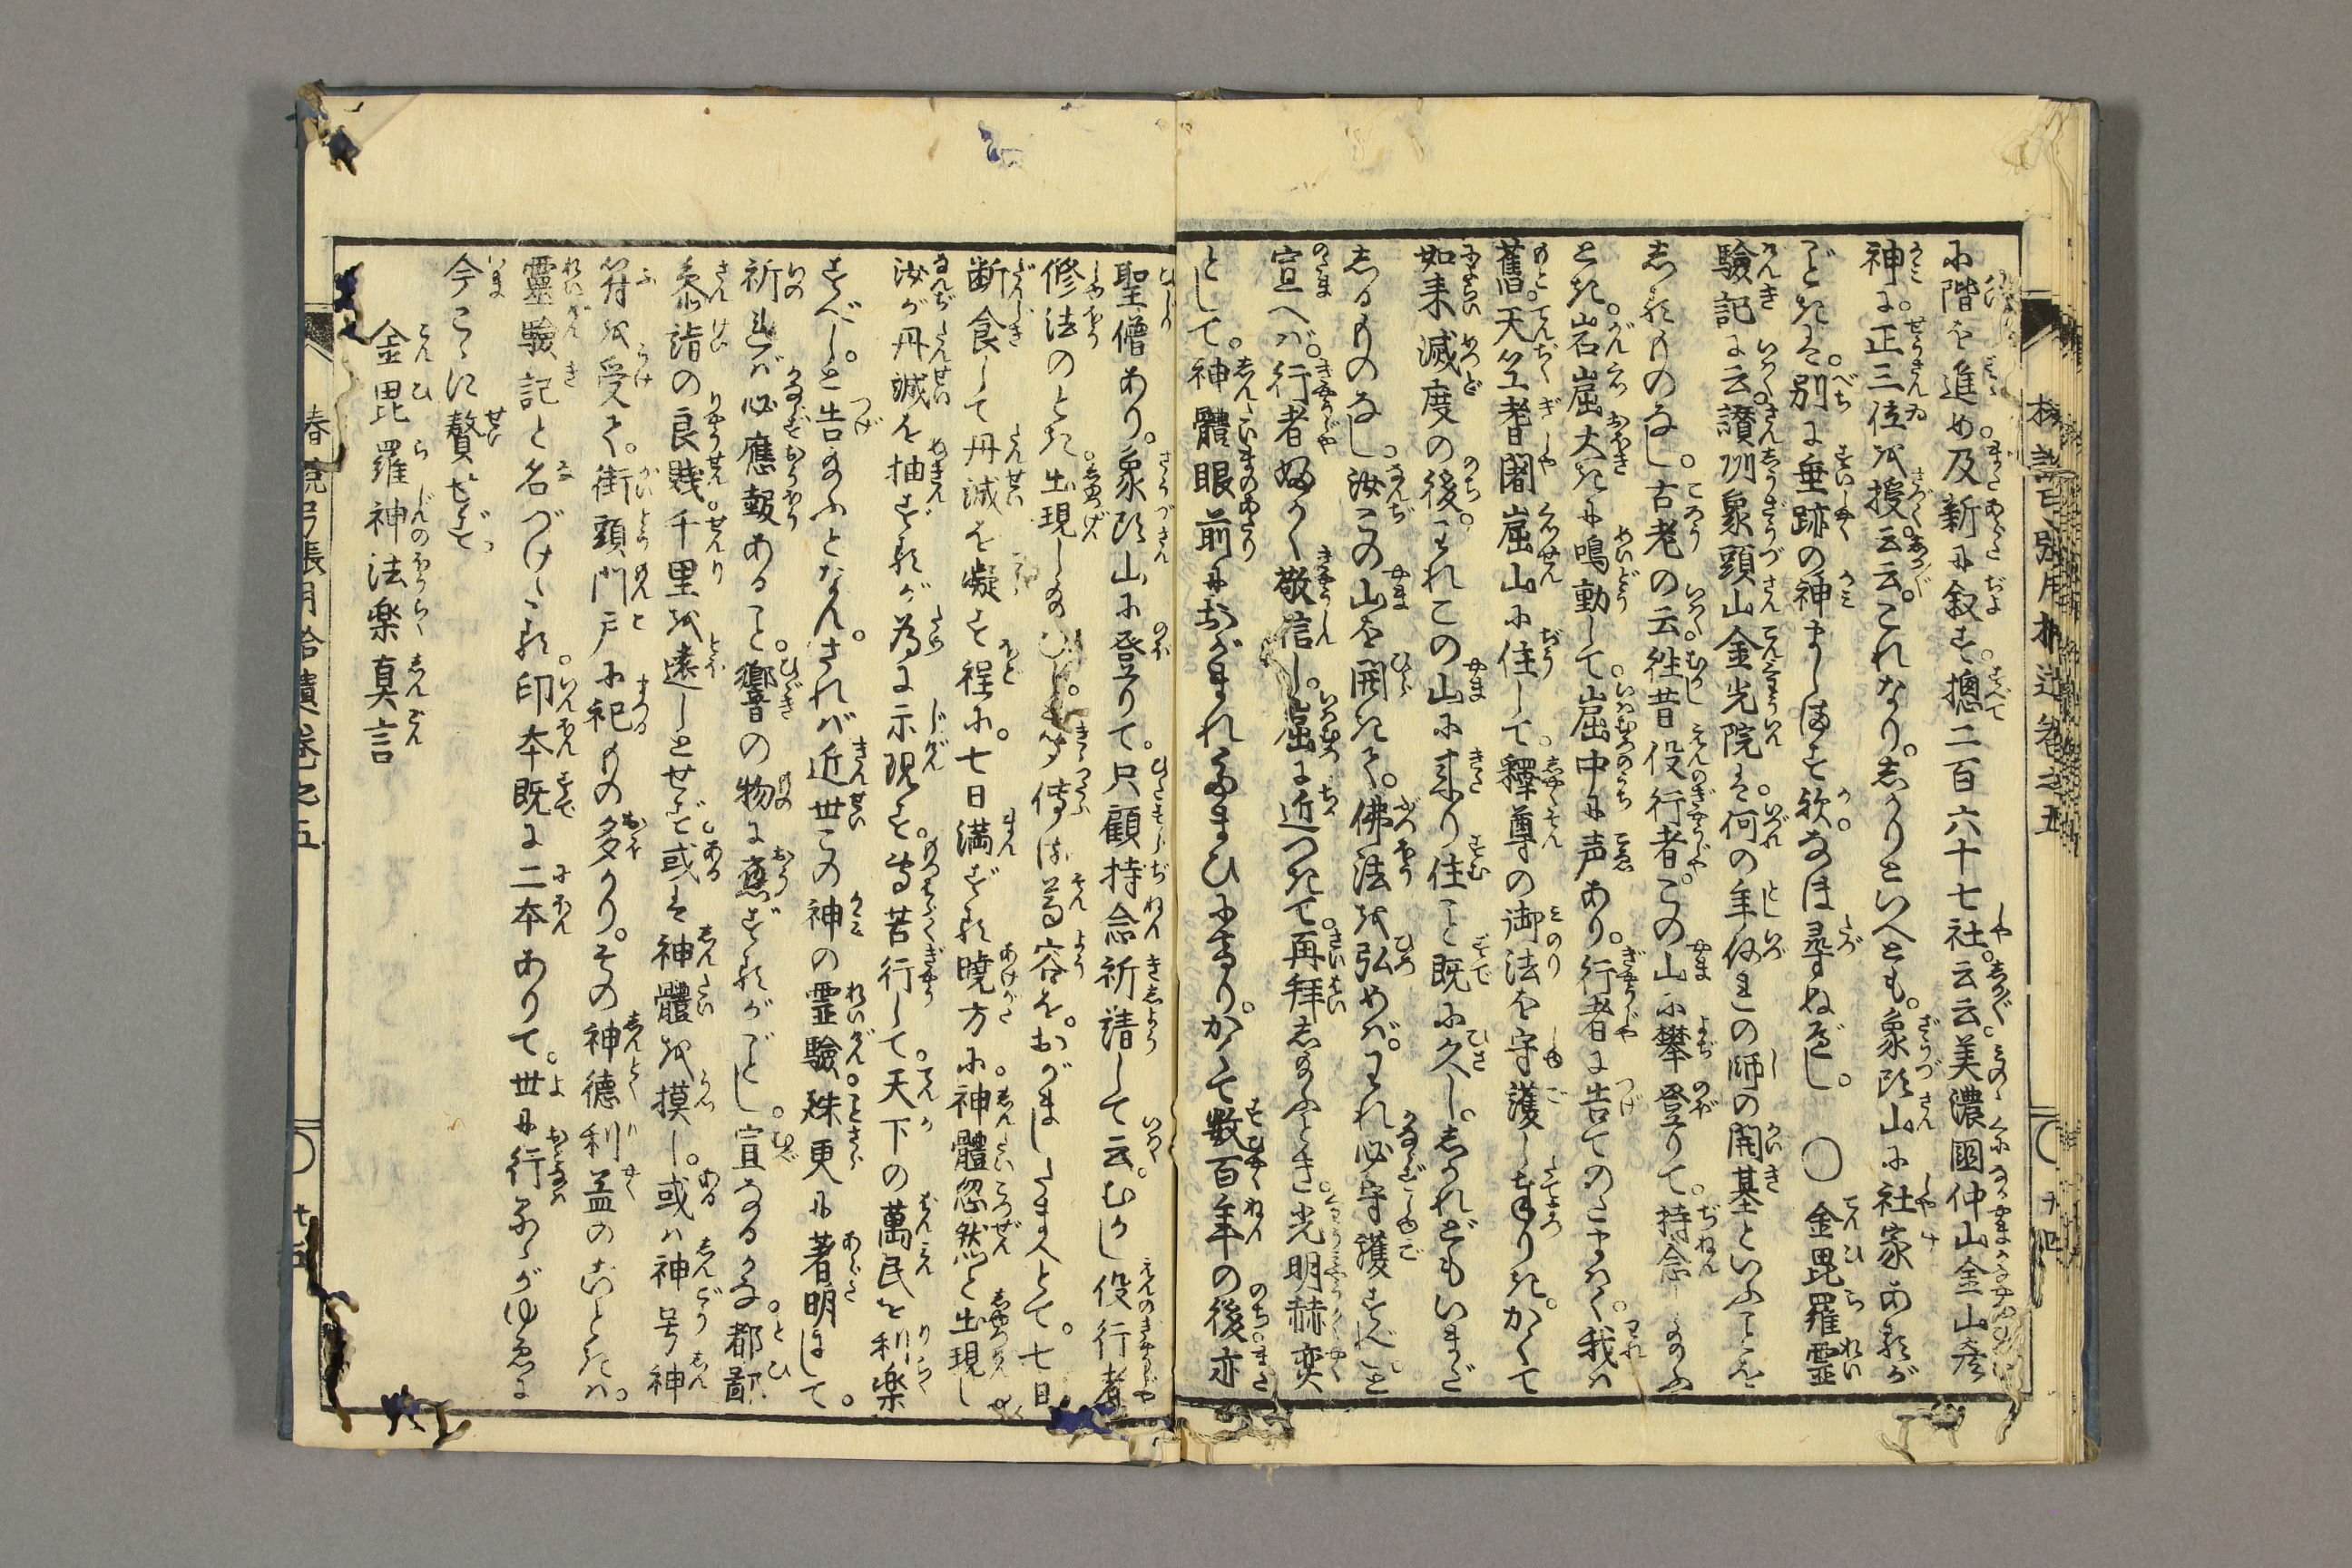 に階を進め。及新に叙す。摠二百六十七社。云云。美濃國仲山金山彦
神に。正三位を授云云。これなり。しかりといへども。象頭山に社家あるが
ごときは。別に垂跡の神ましますか。なほ尋ぬべし。 ○金毘羅靈
驗記に云讃州象頭山金光院は。何の年何の師の開基といふことを
しるものなし。古老の云往昔役行者。この山に攀登りて。持念し給ふ
とき。岩崛大きに鳴動して。崛中に声あり。行者に告てのたまはく。我は
舊。天竺耆闍崛山に住して。釋尊の御法を守護したてまつりき。かくて
如来滅度の後。われこの山に来り住こと既に久し。しかれどもいまだ
しるものなし。汝この山を開きて。佛法を弘めば。われ必守護すべしと
宣へば。行者ふかく敬信し。崛に近づきて。再拜し給ふとき。光明赫奕
として。神體眼前にをがまれたまひにけり。かくて数百年の後。亦
聖僧あり。象頭山に登りて。只顧持念祈請して云。むかし役行者
修法のとき。出現し給ひし。尊容を。おがまし給へとて。七日
断食して丹誠を凝す程に。七日満ずる曉方に。神體忽然と出現し
汝が丹誠を抽ずるが為に示現す。苦行して。天下の萬民を利樂
すべし。と告給ふとなん。されば近世この神の霊驗。殊更に著明にして。
祈れば必應報あること。響の物に應ずるがごとし。宜なるかな。都鄙
参詣の良賤。千里を遠しとせず。或は神體を摸し。或は神号神
符を受て。街頭門戸に祀もの多かり。その神德利益のごときは。
靈驗記と名づけたる。印本既に二本ありて。世に行るゝがゆゑに
今こゝに贅せず。
金毘羅神法楽真言
春説弓張月拾遺巻之五
十四
十五